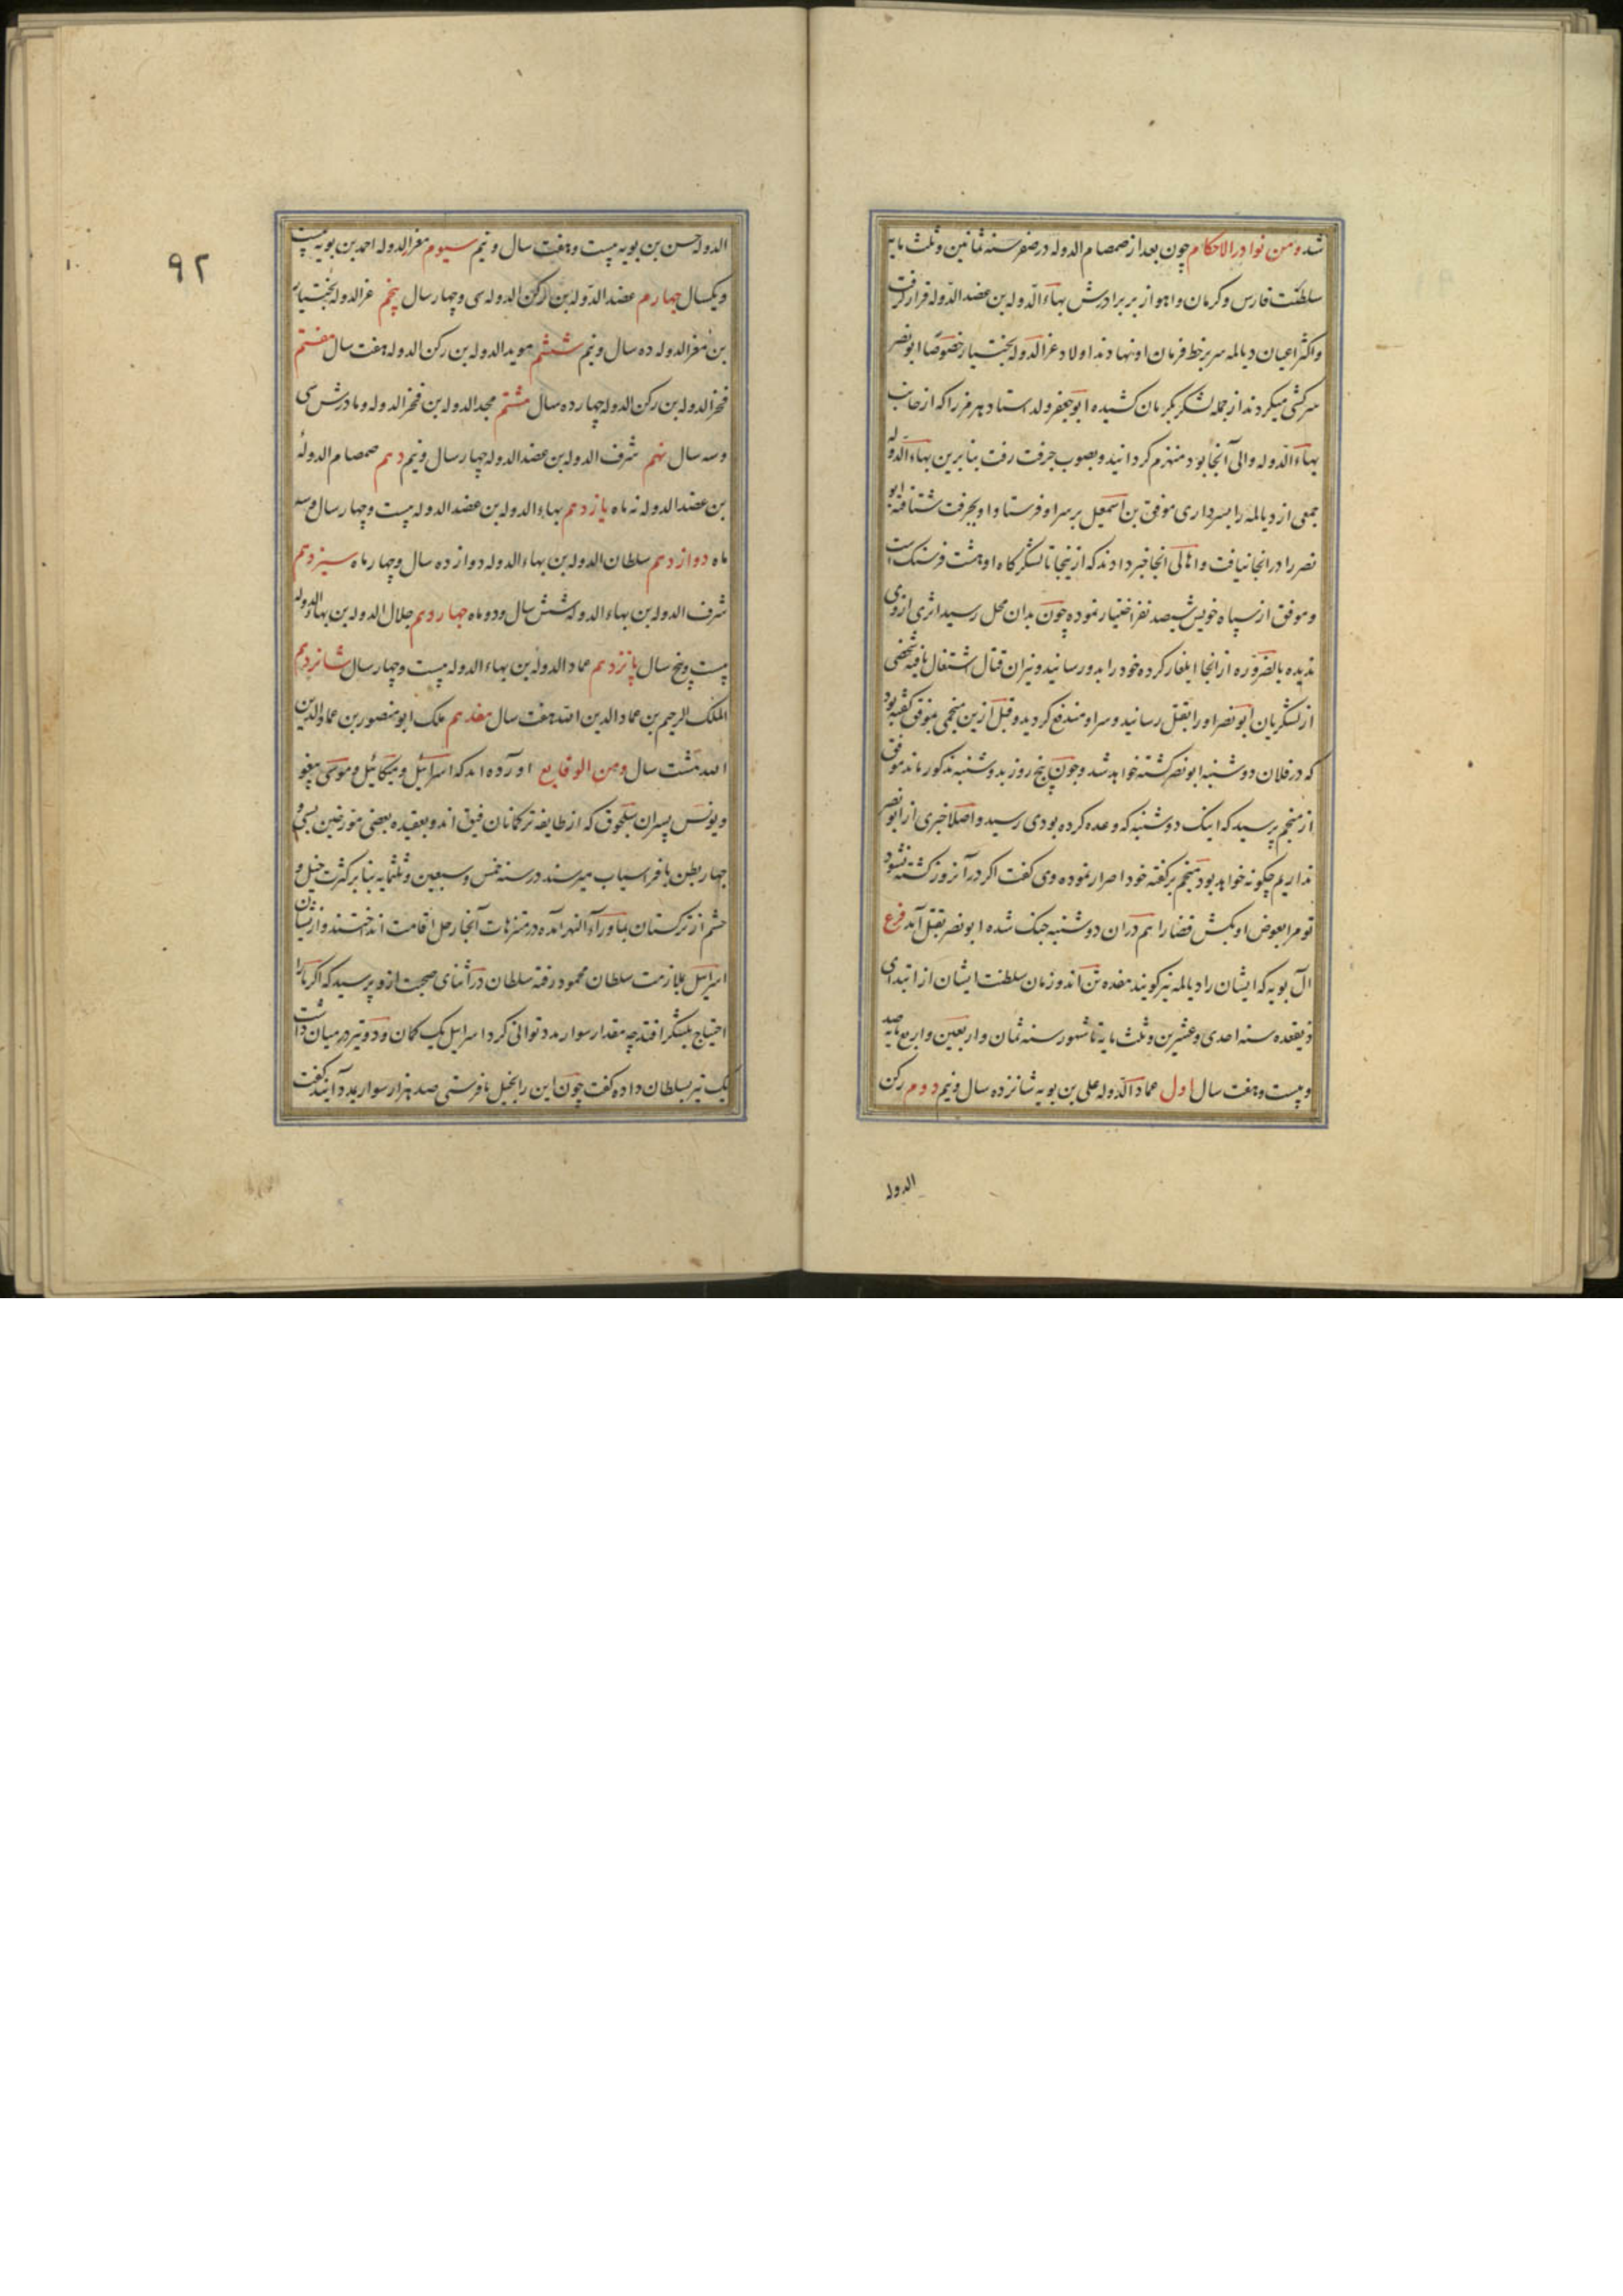 شد و من نوادر الاحکام چون بعد از صمصام الدوله در صفر سنه ثمانین و ثلث مایه
سلطنت فارس و کرمان و اهواز بر برادرش بهاء الدوله بن عضد الدوله قرار گرفت
و اکثر اعیان دیالمه سر بر خط فرمان او نهادند اولاد عز الدوله بختیار خصوصا ابو نصر
سرکشی میکردند از جمله لشکر بکرمان کشیده ابو جعفر ولد استاد هرمز را که از جانب
بهاء الدوله والی آنجا بود منهزم کردانید و بصوب جرفت رفت بنابرین بهاء الدوله
جمعی از دیالمه را بسرداری موفق بن اسمعیل بر سر او فرستاد او بجرفت شتافته ابو
نصر را در انجا نیافت و اهالی انجا خبر دادند که ازینجا تا لشکرکاه او هشت فرسنک است
و موفق از سپاه خویش سیصد نفر اختیار نموده چون بدان محل رسید اثری از وی
ندیده بالضروره از انجا ایلغار کرده خود را بدو رسانید و نیران قتال اشتغال یافته شخصی
از لشکریان ابو نصر او را بقتل رسانید و سر او مندفع کردید و قبل ازین منجمی بموفق کفته بود
که در فلان دوشنبه ابو نصر کشته خواهد شد و چون پنج روز بدوشنبه مذکور ماند موفق
از منجم پرسید که اینک دوشنبه که وعده کرده بودی رسید و اصلا خبری از ابو نصر
نداریم چکونه خواهد بود منجم بر کفته خود اصرار نموده وی کفت اکر در آنروز کشته نشود
تو مرا بعوض او بکش قضا را هم در ان دوشنبه جنک شده ابو نصر بقتل آمد فرع
ال بویه که ایشان را دیالمه نیز کویند هفده تن اند و زمان سلطنت ایشان از ابتدای
ذیقعده سنه احدی و عشرین و ثلث مایه تا شهور سنه ثمان و اربعین و اربع مایه صد
و بیست و هفت سال اول عماد الدوله علی بن بویه شانزده سال و نیم دوم رکن
الدوله
۹۲
الدوله حسن بن بویه بیست و هفت سال و نیم سیوم معز الدوله احمد بن بویه بیست
و یکسال چهارم عضد الدوله بن رکن الدوله سی و چهار سال پنجم عز الدوله بختیار
بن معز الدوله ده سال و نیم ششم موید الدوله بن رکن الدوله هفت سال هفتم
فخر الدوله بن رکن الدوله چهارده سال هشتم مجد الدوله بن فخر الدوله و مادرش سی
و سه سال نهم شرف الدوله بن عضد الدوله چهار سال و نیم دهم صمصام الدوله
بن عضد الدوله نه ماه یازدهم بهاء الدوله بن عضد الدوله بیست و چهار سال و سه
ماه دوازدهم سلطان الدوله بن بهاء الدوله دوازده سال و چهار ماه سیزدهم
شرف الدوله بن بهاء الدوله شش سال و دو ماه چهاردهم جلال الدوله بن بهاء الدوله
بیست و پنج سال پانزدهم عماد الدوله بن بهاء الدوله بیست و چهار سال شانزدهم
الملک الرحیم بن عماد الدین الله هفت سال هفدهم ملک ابو منصور بن عماد الدین
الله هشت سال و من الوقایع اورده اند که اسرائیل و میکائیل و موسی بیغو
و یونس پسران سلجوق که از طایفه ترکمانان قنیق اند و بعقیده بعضی مورخین بسی و
چهار بطن بافراسیاب میرسند در سنه خمس و سبعین و ثلثمایه بنا بر کثرت خیل و
حشم از ترکستان بماوراء النهر آمده در متنزهات آنجا رحل اقامت انداختند و ازیشان
اسرائیل بملازمت سلطان محمود رفته سلطان در اثنای صحبت ازو پرسید که اکر ما را
احتیاج بلشکر افتد چه مقدار سوار مدد توانی کرد اسرائیل یک کمان و دو تیر در میان داشت
یک تیر بسلطان داده کفت چون این را بخیل ما فرستی صد هزار سوار بمدد آیند کفت